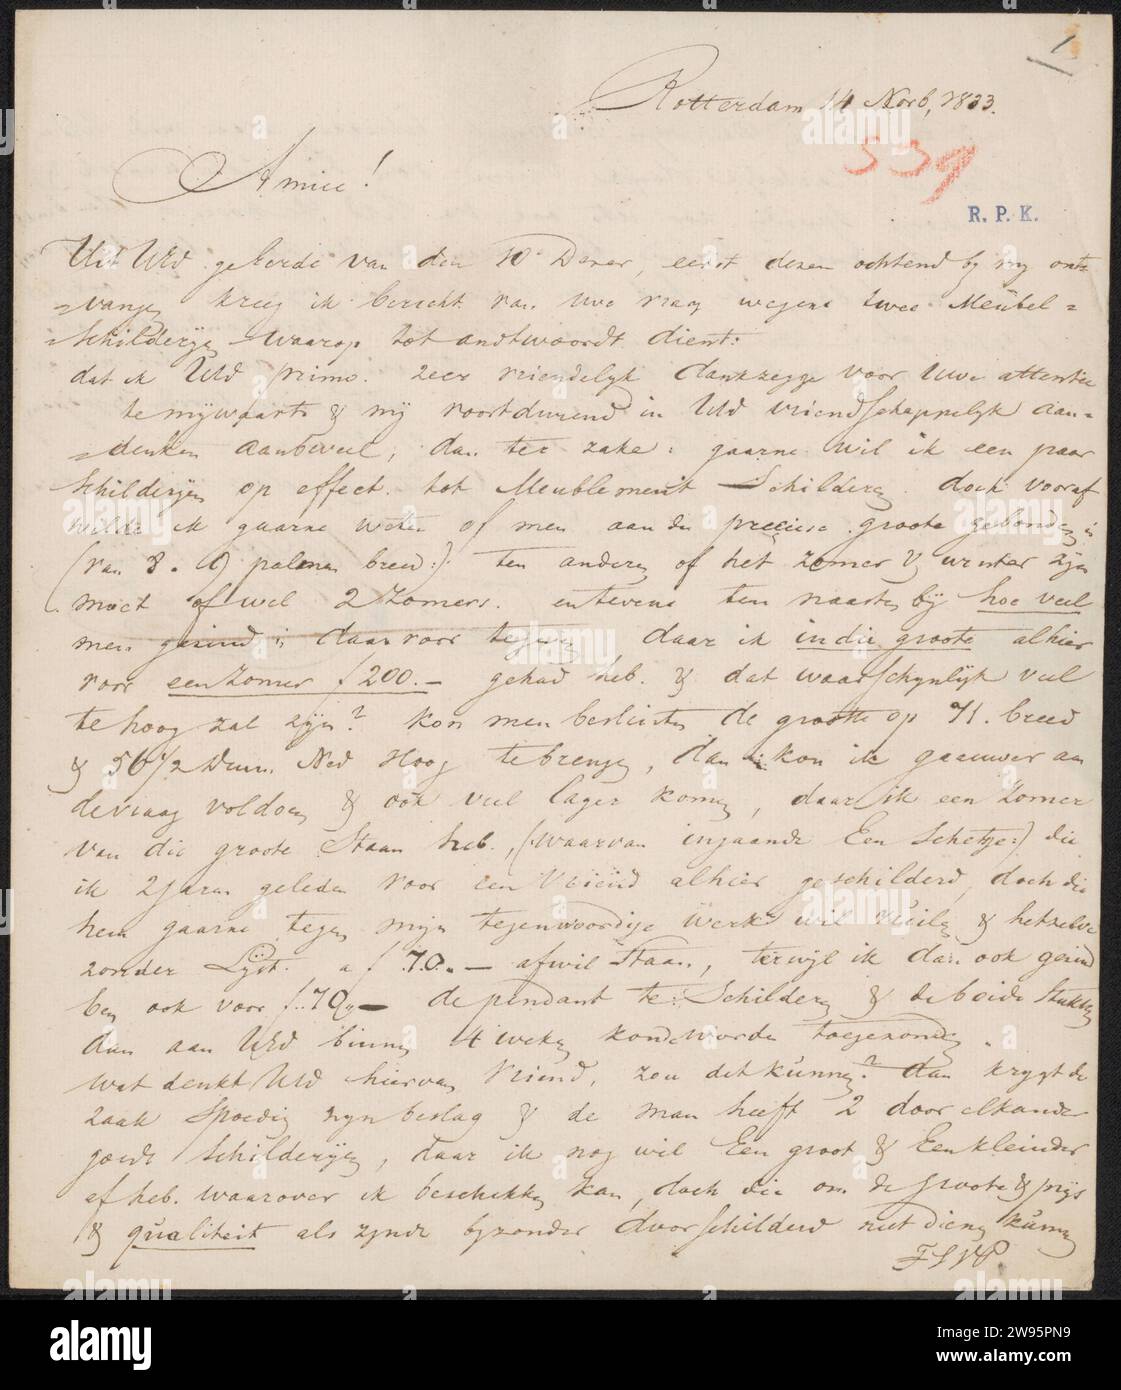 1
Rotterdam 14 Novb, 1833.
339
Amice!
R. P. K.
Uit UEd geëerde van den 10e Dezer, eerst dezen ochtend bij mij ont=
=vangen kreeg ik berecht van uwe vraag wegens twee Meubel=
=Schilderijen waarop tot andtwoordt dient:
dat ik UEd primo. zeer vriendelijk dankzegge voor Uwe attentie
te mijwaarts & mij voortdurend in UEd vriendschappelijk aan=
=denken aanbeveel, dan ter zake: gaarne wil ik een paar
Schilderijen op effect. tot Meublement Schilderen doch vooraf
wilde ik gaarne weten of men aan die preciese groote gebonden is
(van 8 . 9 palmen breed:) ten anderen of het zomer & winter zijn
moet of wel 2 Zomers. en tevens ten naasten bij hoe veel
men gezind is daarvoor tegeven daar ik in die groote alhier
voor een Zomer f 200.- gehad heb. & dat waarschynlijk veel
te hoog zal zijn? kon men besluiten de groote op 71. breed
& 56 1/2 Duim Ned Hoog tebrengen, dan kon ik gaauwer aan
de vraag voldoen & ook veel lager komen, daar ik een Zomer
van die groote Staan heb, (:waarvan ingaande Een Schetsje:) die
ik 2 jaren geleden voor een Vriend alhier geschilderd, doch die
hem gaarne tegen mijn tegenwoordige werk wil ruilen & hetzelve
zonder Lijst. a f 70.- afwil Staan, terwijl ik dan ook gezind
ben ook voor f 70.- de pendant te Schilderen & de beide Stukken
dan aan UEd binnen 4 weken konde worden toegezonden.
wat denkt UEd hiervan Vriend, zou dit kunnen? dan krijgt de
zaak Spoedig zyn beslag & de man heeft 2 door elkander
goede Schilderijen, daar ik nog wel Een groot & Een kleinder
af heb. waarover ik beschikken kan, doch die om de groote & prijs
& qualiteit als zynde byzonder doorschilderd niet dienen kunnen
TSVP
alamy
Image ID: 2W95PN9
www.alamy.com